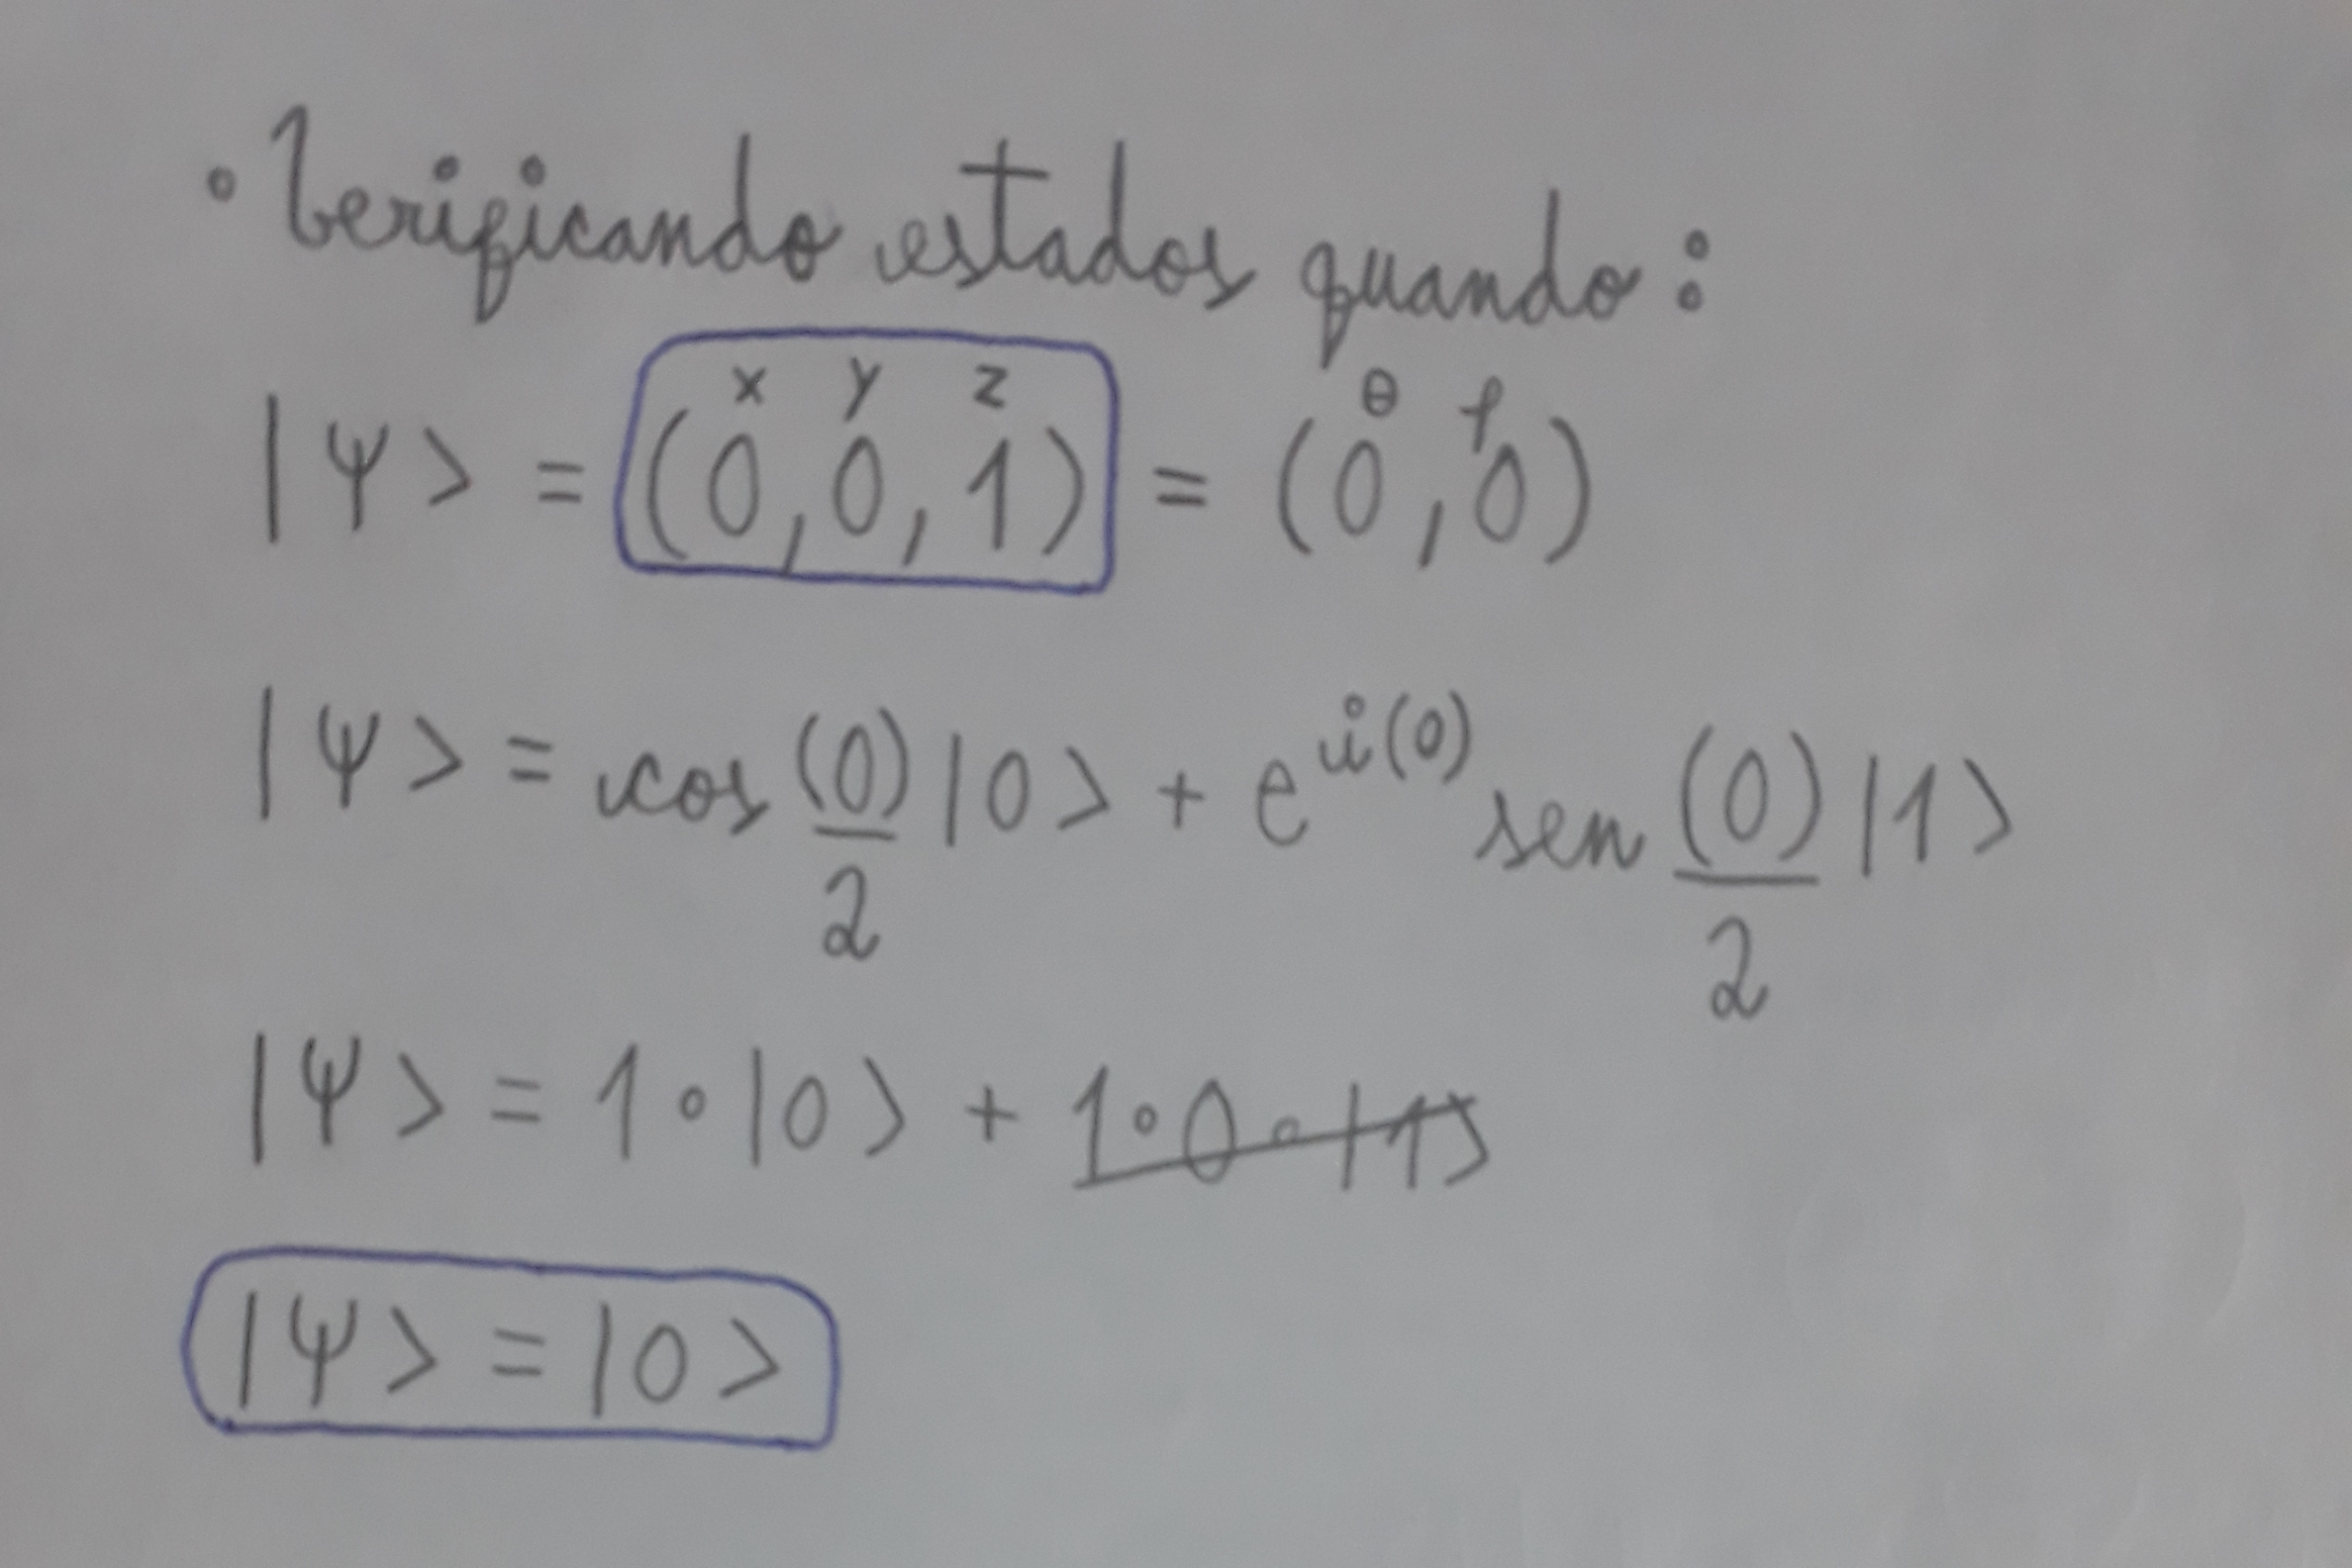 • Verificando estados quando:
x y z θ φ
|ψ> = (0,0,1) = (0,0)
|ψ> = cos (0)/2 |0> + e^i(0) sen (0)/2 |1>
|ψ> = 1•|0> + 1•0•|1>
|ψ> = |0>